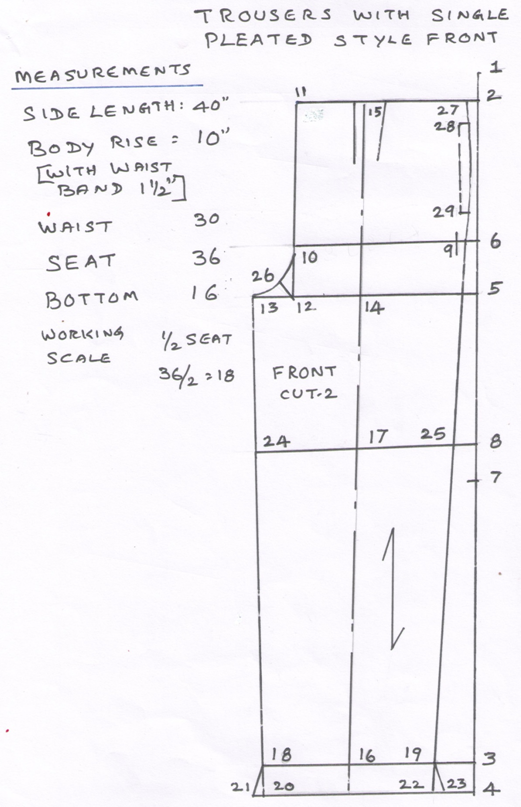 TROUSERS WITH SINGLE
PLEATED STYLE FRONT
MEASUREMENTS
SIDE LENGTH: 40"
BODY RISE = 10"
[WITH WAIST
BAND 1½"]
WAIST 30
SEAT 36
BOTTOM 16
WORKING ½ SEAT
SCALE
36/2 = 18
1
11 15 27 2
28
29
10 9 6
26
13 12 14 5
FRONT
CUT-2
24 17 25 8
7
18 16 19 3
21 20 22 23 4